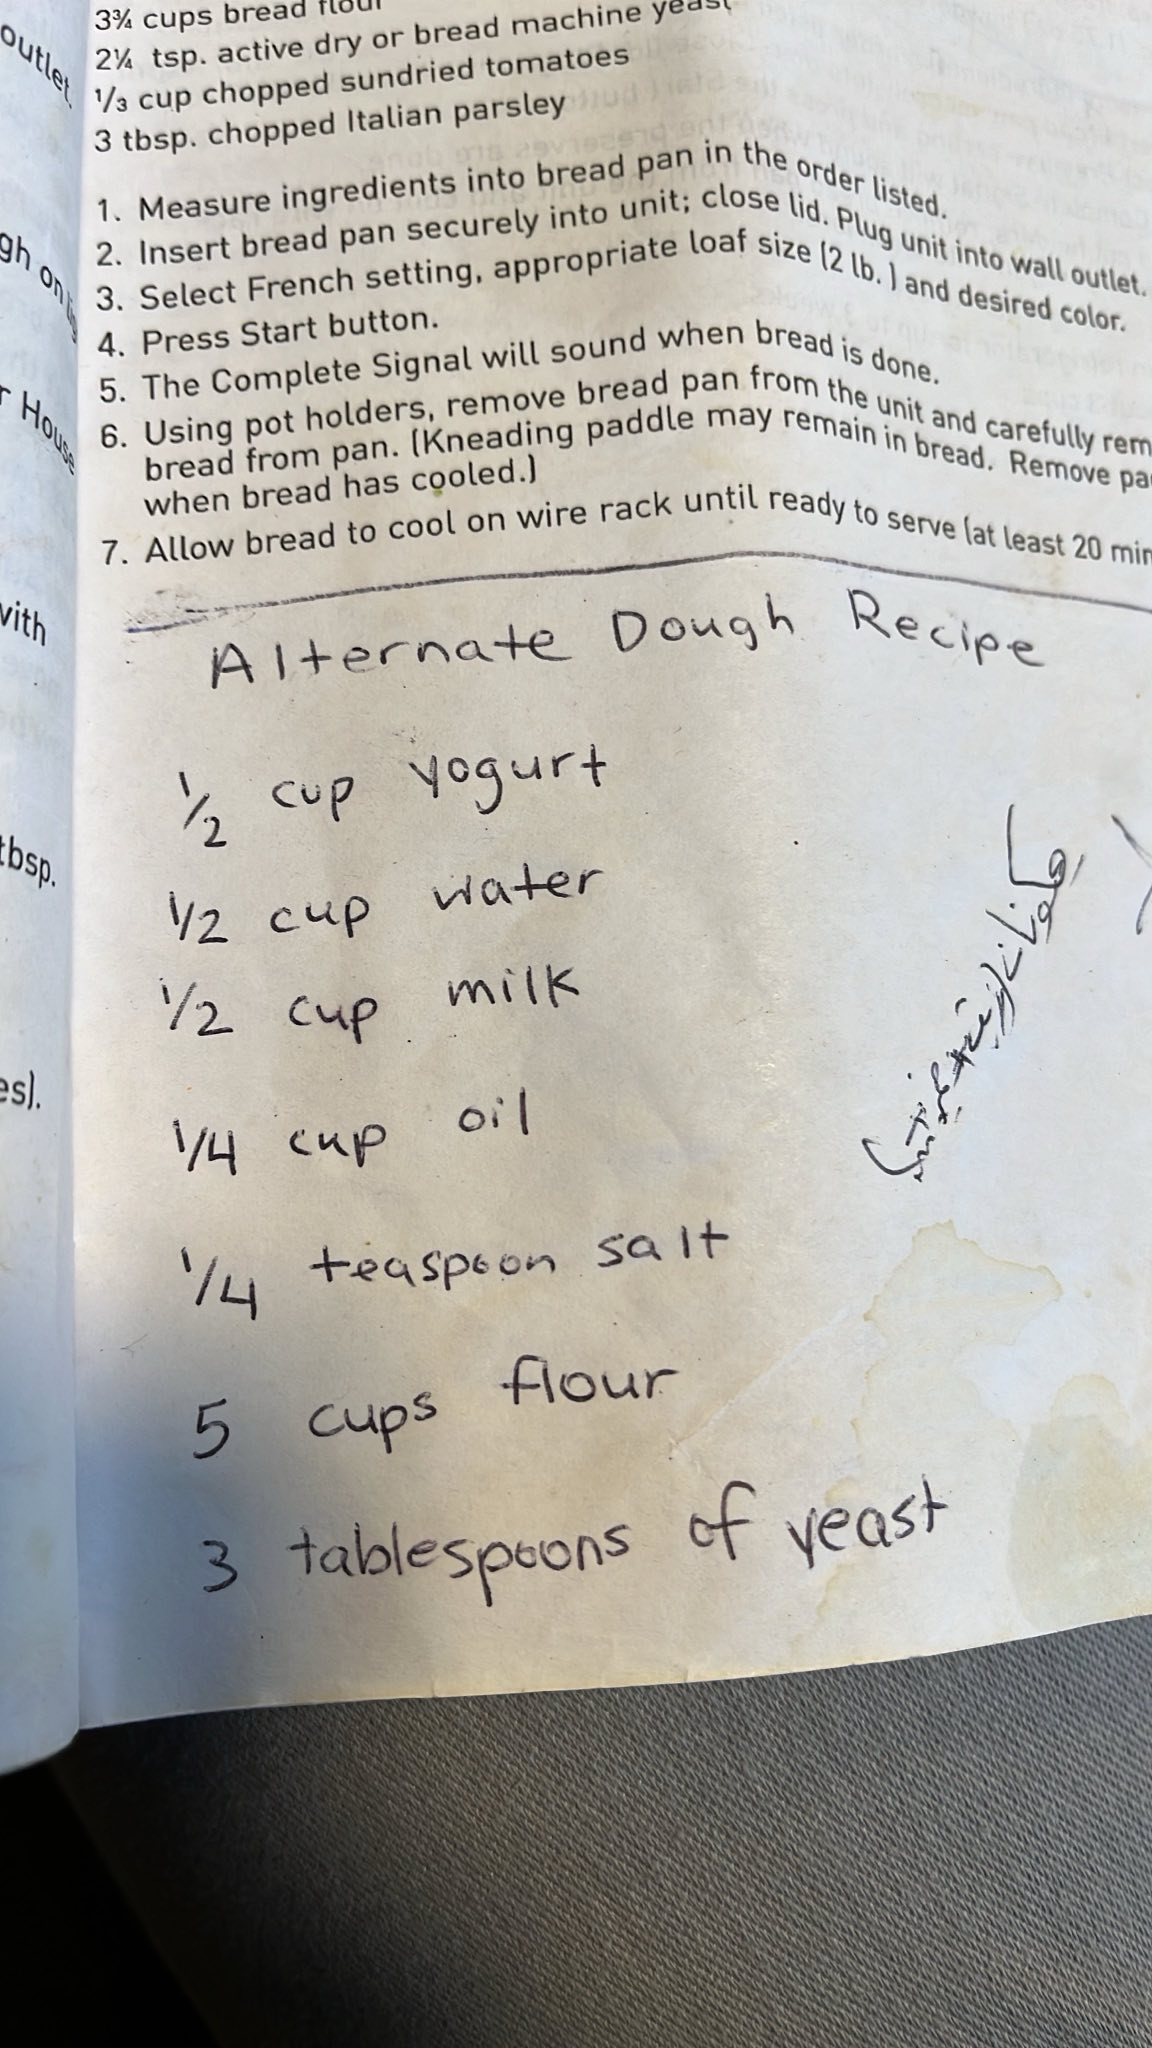 outlet.
gh on
r House
with
tbsp.
es).
3¾ cups bread flour
2¼ tsp. active dry or bread machine yeast
1/3 cup chopped sundried tomatoes
3 tbsp. chopped Italian parsley
1. Measure ingredients into bread pan in the order listed.
2. Insert bread pan securely into unit; close lid. Plug unit into wall outlet.
3. Select French setting, appropriate loaf size (2 lb. ) and desired color.
4. Press Start button.
5. The Complete Signal will sound when bread is done.
6. Using pot holders, remove bread pan from the unit and carefully rem
bread from pan. (Kneading paddle may remain in bread. Remove pa
when bread has cooled.)
7. Allow bread to cool on wire rack until ready to serve (at least 20 min
Alternate Dough Recipe
1/2 cup yogurt
1/2 cup water
1/2 cup milk
1/4 cup oil
1/4 teaspoon salt
5 cups flour
3 tablespoons of yeast